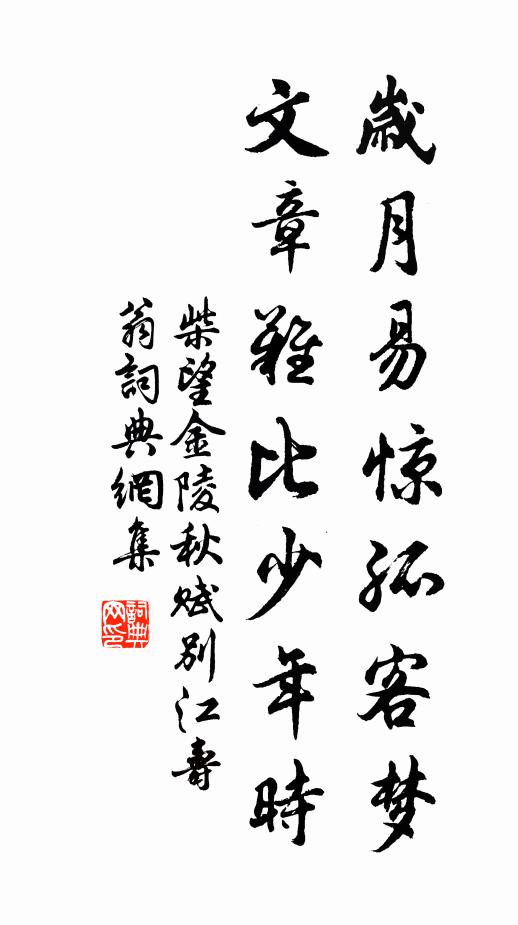 歲月易惊孤客梦
文章難比少年時
柴望金陵秋赋别江壽
翁詞典網集
詞典网印